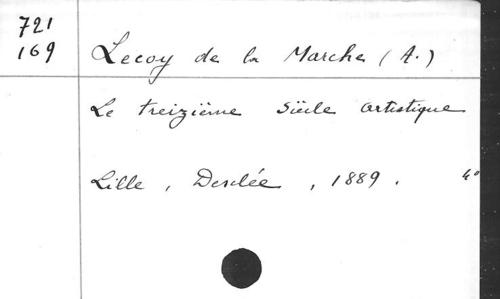 721
169
Lecoy de la Marche (A.)
Le treizième siècle artistique
Lille, Desclée, 1889. 4°